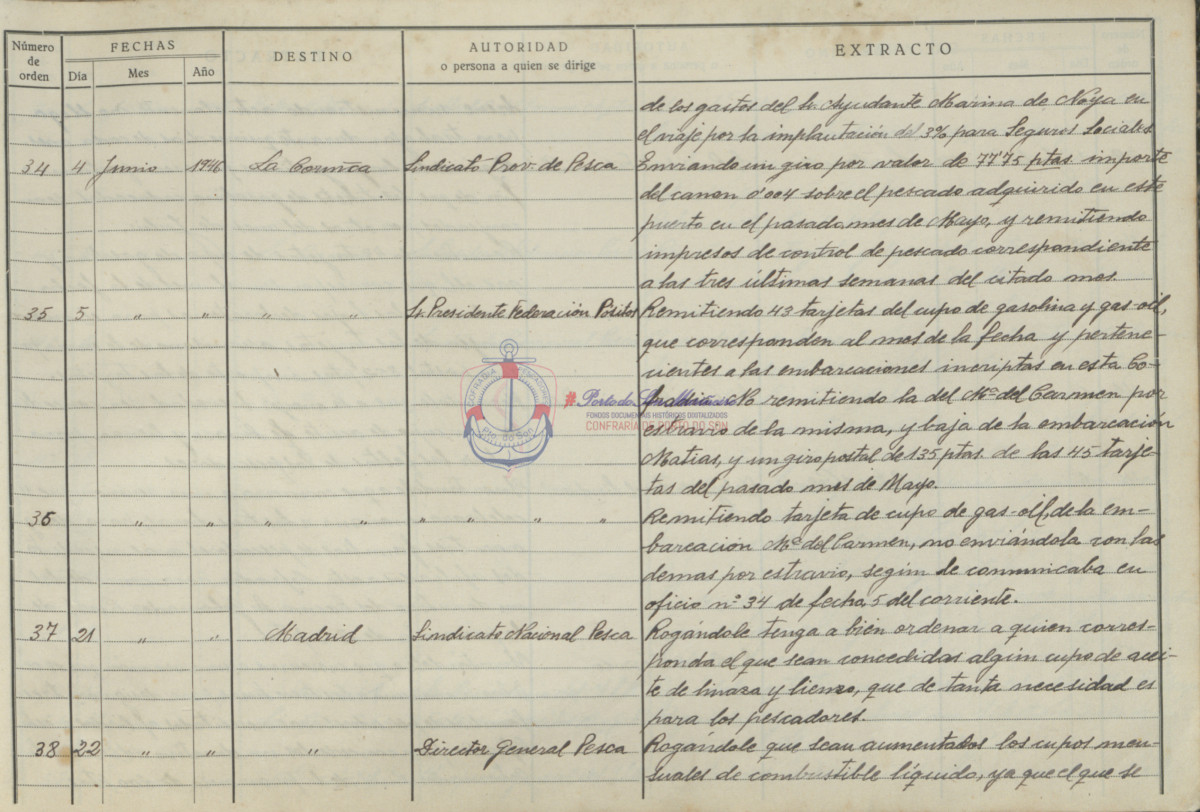 Número de orden
FECHAS
Día
Mes
Año
DESTINO
AUTORIDAD
o persona a quien se dirige
EXTRACTO
de los gastos del Sr. Ayudante Marina de Noya en
el viaje por la implantación del 3% para Seguros Sociales
34 4 Junio 1946 La Coruñca Sindicato Prov. de Pesca Enviando un giro por valor de 77'75 ptas. importe
del canon 0'004 sobre el pescado adquirido en este
puerto en el pasado mes de Mayo, y remitiendo
impresos de control de pescado correspondiente
a las tres últimas semanas del citado mes.
35 5 " " " " Sr. Presidente Federación Pósitos Remitiendo 43 tarjetas del cupo de gasolina y gas-oil,
que corresponden al mes de la fecha y pertene-
cientes a las embarcaciones incriptas en esta Co-
fradia. No remitiendo la del Mª del Carmen por
estravio de la misma, y baja de la embarcación
Matias, y un giro postal de 135 ptas. de las 45 tarje-
tas del pasado mes de Mayo.
36 " " " " " " " " Remitiendo tarjeta de cupo de gas-oil, de la em-
barcación Mª del Carmen, no enviándola con las
demas por estravio, según le comunicaba en
oficio nº 34 de fecha 5 del corriente.
37 21 " " Madrid Sindicato Nacional Pesca Rogándole tenga a bien ordenar a quien corres-
ponda el que sean concedidas algún cupo de acei-
te de linaza y lienzo, que de tanta necesidad es
para los pescadores.
38 22 " " " Director General Pesca Rogándole que sean aumentados los cupos men-
suales de combustible líquido, ya que el que se
COFRADIA
PESCADORES
Pto. do Son
#Porto do Son
FONDOS DOCUMENTAIS HISTÓRICOS DIXITALIZADOS
CONFRARÍA DE PORTO DO SON